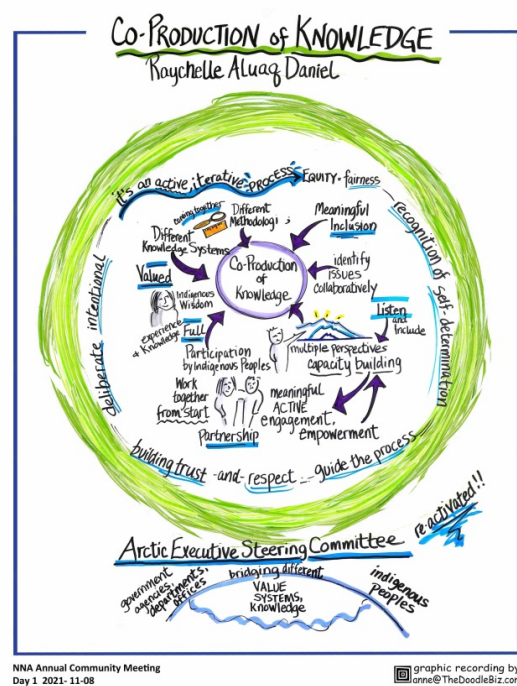 CO-PRODUCTION of KNOWLEDGE
Raychelle Aluaq Daniel
it's an active, iterative PROCESS
EQUITY · fairness
recognition of self-determination
coming together
Different
Methodologi
Meaningful
Inclusion
Different
Knowledge Systems
Valued
Indigenous
Wisdom
experience
+ Knowledge
Co-Production
of
Knowledge
identify
ISSUES
collaboratively
Listen
and
Include
Full
Participation
by Indigenous Peoples
multiple perspectives
capacity building
Work
together
from start
Partnership
meaningful
ACTIVE
engagement,
empowerment
deliberate intentional
building trust -and- respect ... guide the process
re-activated!!
Arctic Executive Steering Committee
government
agencies,
departments,
offices
bridging different
VALUE
SYSTEMS,
Knowledge
indigenous
Peoples
NNA Annual Community Meeting
Day 1 2021-11-08
graphic recording by
anne@TheDoodleBiz.com